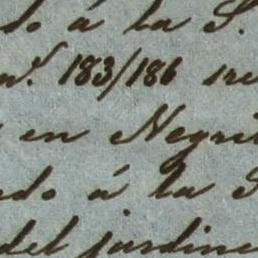 do á la S.
n.º 183/186
en Negri
do á la S
del jardine